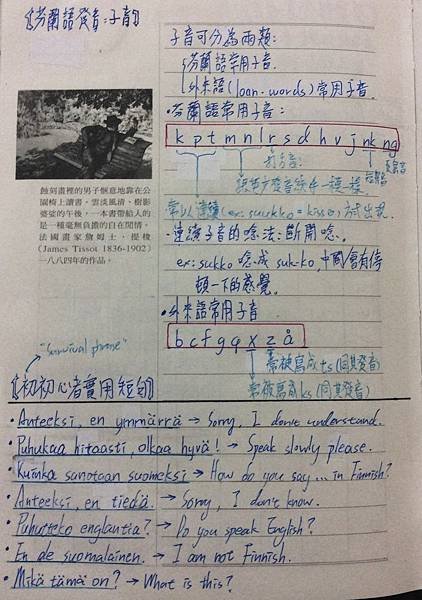 《芬蘭語發音:子音》
子音可分為兩類:
芬蘭語常用子音.
外來語(loan-words)常用子音.
·芬蘭語常用子音:
k p t m n l r s d h v j nk ng
打舌音
常以連續 (ex: suukko = kiss) 方式出現.
·連續子音的唸法:斷開唸。
ex: sukko 唸成 suk-ko, 中間會有停
頓一下的感覺.
·外來語常用子音
b c f g q x z å
常被寫成 ts (同其發音)
常被寫成 ks (同其發音)
蝕刻畫裡的男子愜意地靠在公
園椅上讀書,雲淡風清、樹影
婆娑的午後,一本書帶給人的
是一種毫無負擔的自在閒情。
法國畫家詹姆士.提梭
(James Tissot 1836-1902)
一八八四年的作品。
"Survival phrase"
《初初心者實用短句》
·Anteeksi, en ymmärrä → Sorry, I don't understand.
·Puhukaa hitaasti, olkaa hyvä! → Speak slowly please.
·Kuinka sanotaan suomeksi → How do you say ... in Finnish?
·Anteeksi, en tiedä. → Sorry, I don't know.
·Puhutteko englantia? → Do you speak English?
·En de suomalainen. → I am not Finnish.
·Mikä tämä on? → What is this?